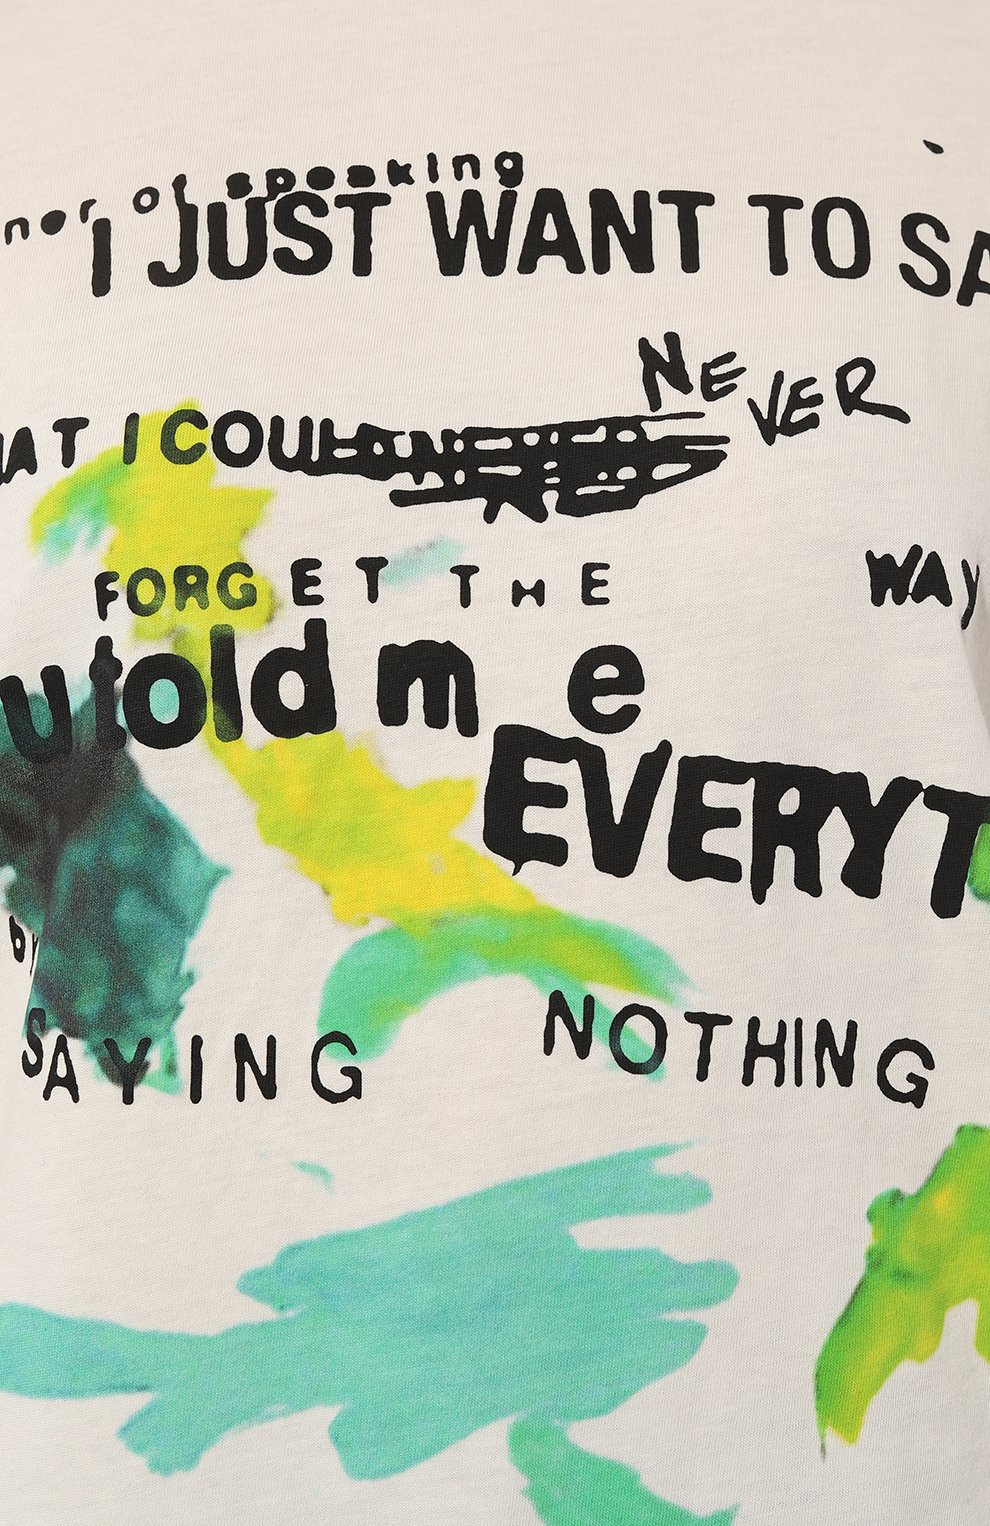 ner of speaking
I JUST WANT TO SA
HAT I COULDN NEVER
FORGET THE WAY
u told me
EVERYT
by
SAYING NOTHING